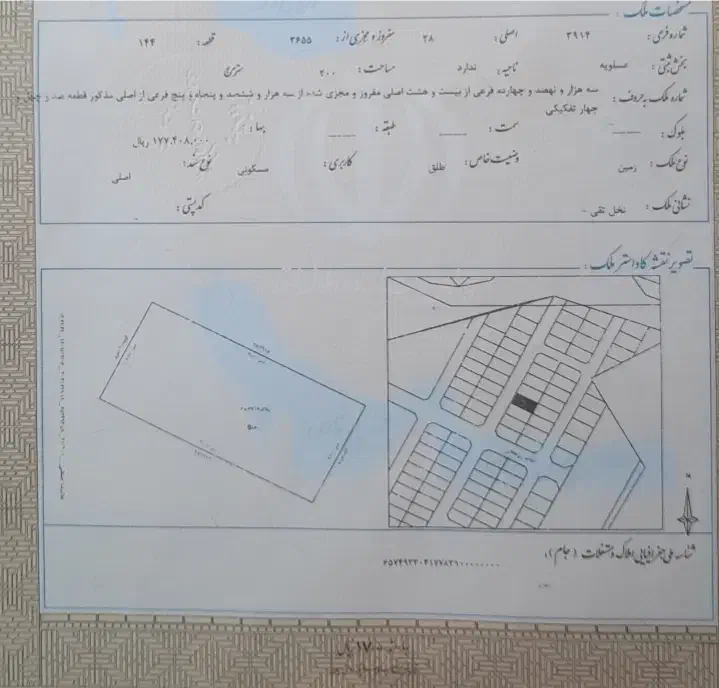 مشخصات ملک :
شماره فرعی : ۳۹۱۴ اصلی : ۲۸ مفروز و مجزی از : ۳۶۵۵ قطعه : ۱۴۴
بخش ثبتی : عسلویه ناحیه : ندارد مساحت : ۲۰۰ مترمربع
شماره ملک به حروف : سه هزار و نهصد و چهارده فرعی از بیست و هشت اصلی مفروز و مجزی شده از سه هزار و ششصد و پنجاه و پنج فرعی از اصلی مذکور قطعه صد و چهل و
چهار تفکیکی
بلوک : سمت : طبقه : بها : ۱۷۷،۴۰۸،۰۰۰ ریال
نوع ملک : زمین وضعیت خاص : طلق کاربری : مسکونی نوع سند : اصلی
نشانی ملک : نخل تقی - کدپستی :
تصویر نقشه کاداستر ملک :
شناسه ملی جغرافیایی املاک و مستغلات (جام) :